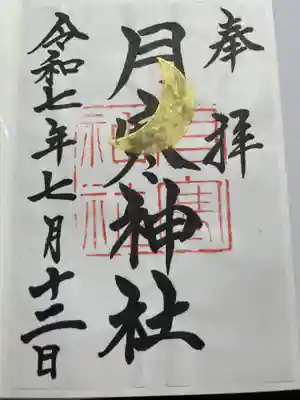 奉拝
月寒神社
令和七年七月十二日